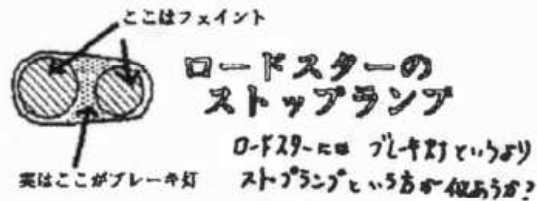 ここはフェイント
ロードスターの
ストップランプ
ロードスターには ブレーキ灯というより
ストップランプという方が似あうか?
実はここがブレーキ灯